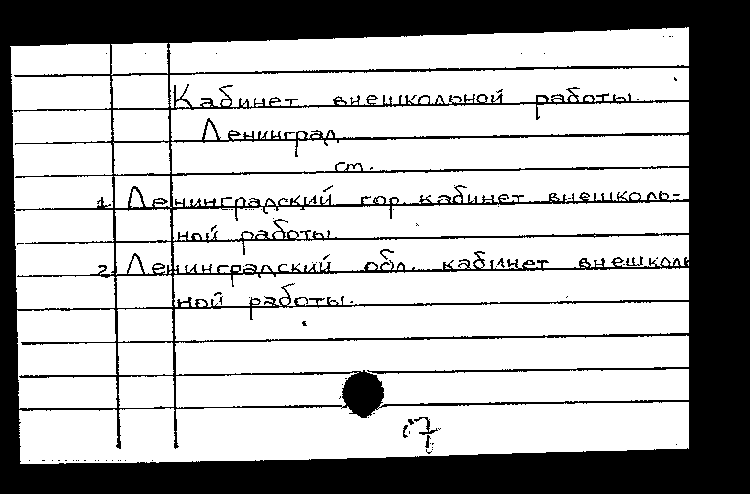 Кабинет внешкольной работы
Ленинград
ст.
1. Ленинградский гор. кабинет внешколь-
ной работы
2. Ленинградский обл. кабинет внешколь
ной работы.